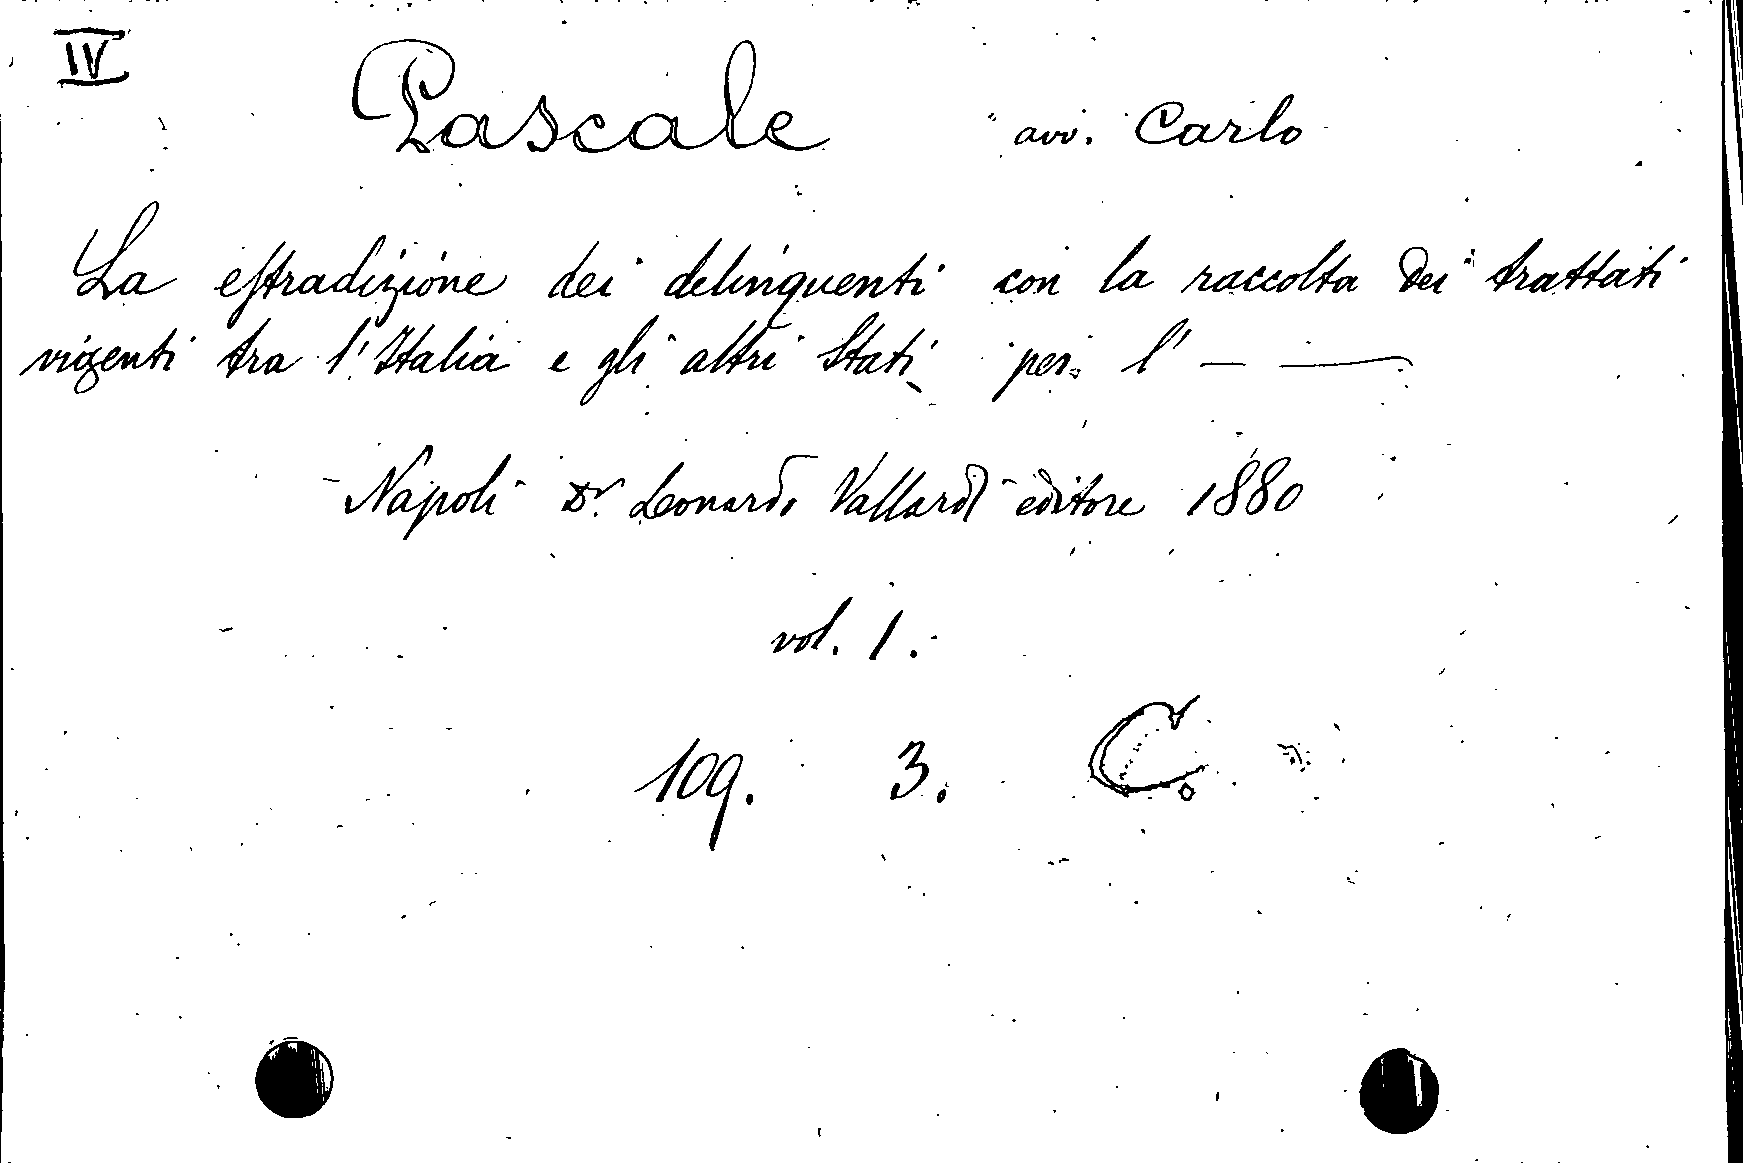 IV
Pascale avv. Carlo
La estradizione dei delinquenti con la raccolta dei trattati
vigenti tra l'Italia e gli altri Stati per l' — —
Napoli Dr. Leonardo Vallardi editore 1880
vol. 1.
109. 3. C.